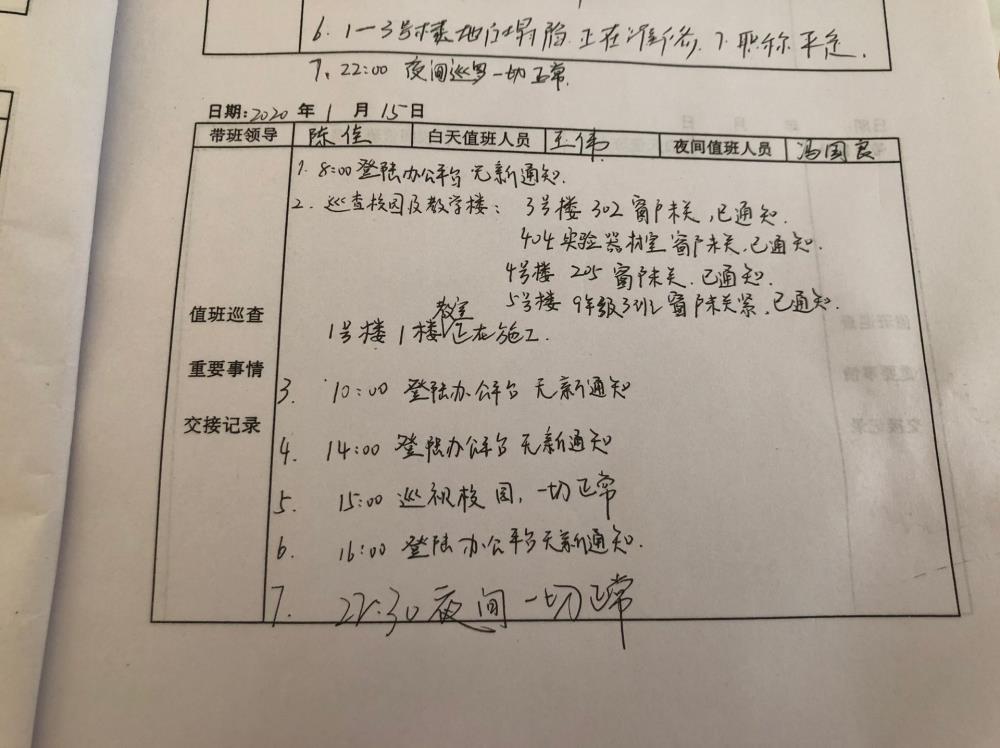 6. 1—3号楼地面塌陷.正在准备, 7. 职称评定.
7、22:00 夜间巡罗一切正常.
日期:2020 年 1 月 15日
带班领导 陈佳 白天值班人员 王伟 夜间值班人员 冯国良
1. 8:00 登陆办公平台 无新通知.
2. 巡查校园及教学楼: 3号楼 302 窗户未关,已通知.
404 实验器材室 窗户未关,已通知.
4号楼 205 窗户未关,已通知.
5号楼 9年级3班 窗户未关紧,已通知.
1号楼 1楼教室正在施工.
值班巡查
重要事情
交接记录
3. 10:00 登陆办公平台 无新通知
4. 14:00 登陆办公平台 无新通知
5. 15:00 巡视校园,一切正常
6. 16:00 登陆办公平台无新通知.
7. 22:30 夜间一切正常